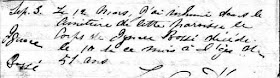 Sep. 3. Le 12 Mars, j'ai inhumé dans le
cimetière de cette paroisse le
Ignace corps de Ignace Rossé décédé
le 10 de ce mois à l'âge de
Rossé 51 ans